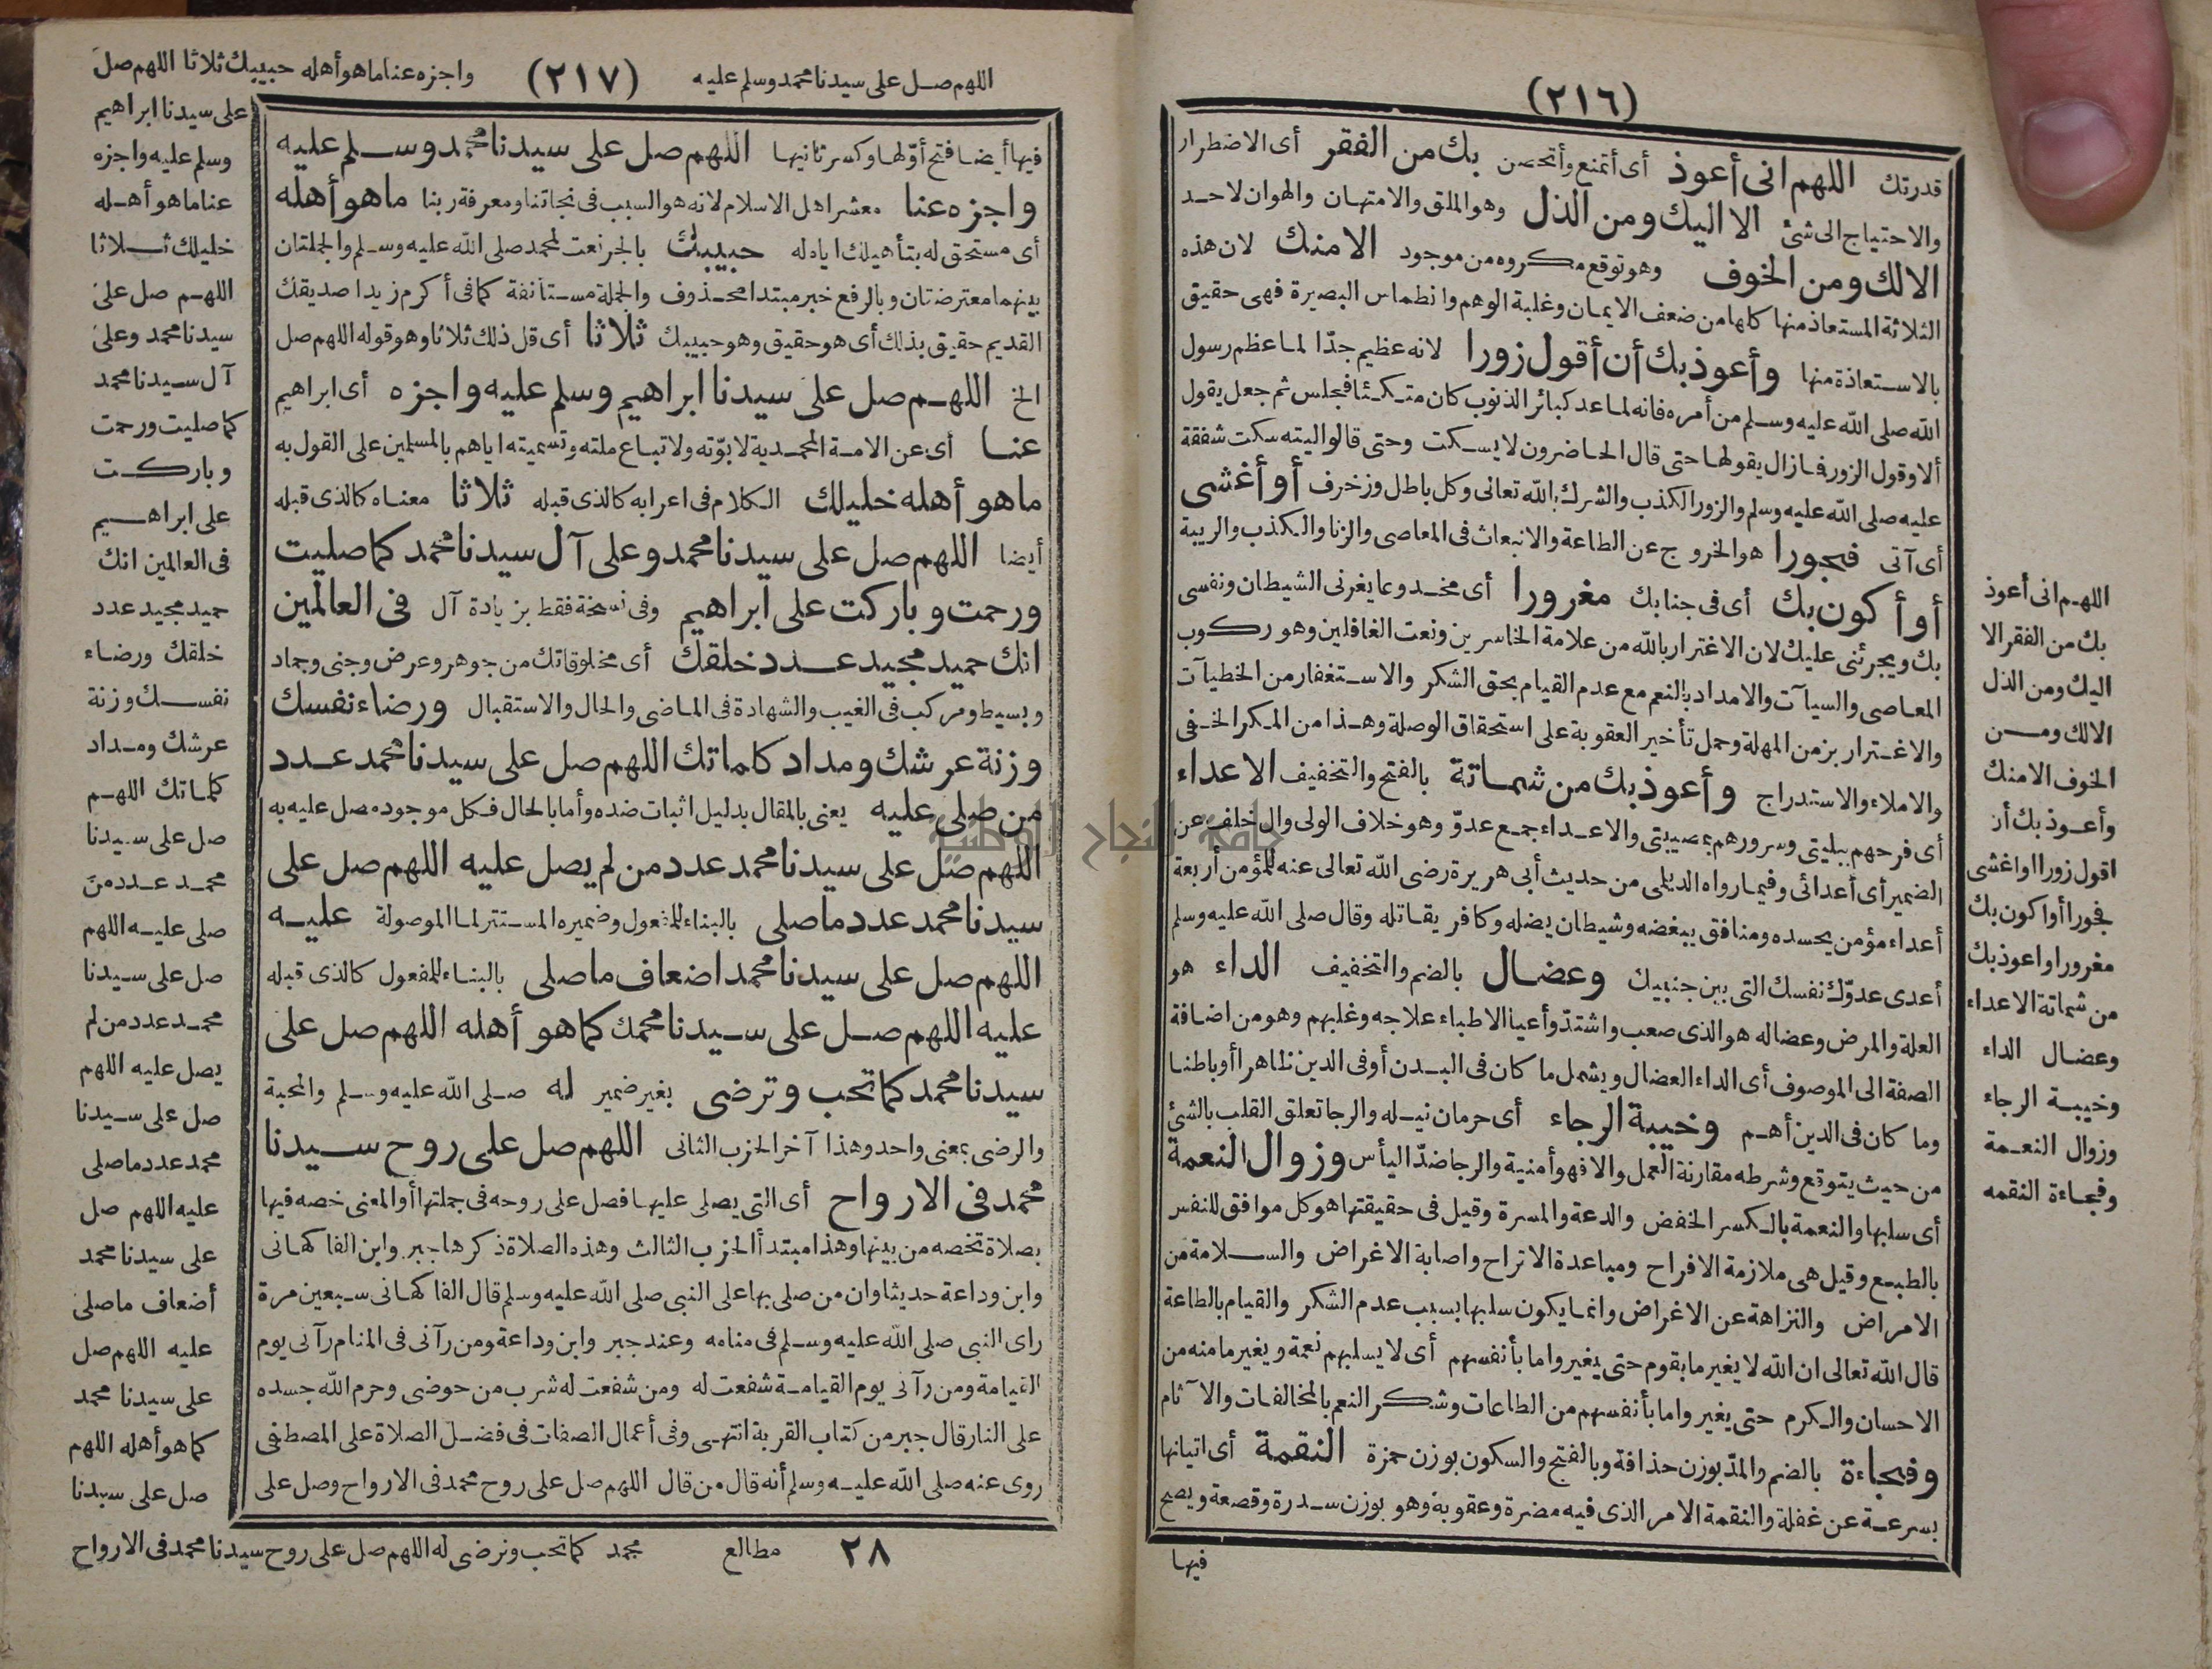 (٢١٦)
قدرتك اللهم انى أعوذ أى أتمنع وأتحصن بك من الفقر أى الاضطرار
والاحتياج الى شئ الا اليك ومن الذل وهو الملق والامتهان والهوان لاحد
الا لك ومن الخوف وهو توقع مكروه من موجود الا منك لان هذه
الثلاثة المستعاذ منها كلها من ضعف الايمان وغلبة الوهم وانطماس البصيرة فهى حقيق
بالاستعاذة منها وأعوذ بك أن أقول زورا لانه عظيم جدّا لما عظم رسول
الله صلى الله عليه وسلم من أمره فانه لما عد كبائر الذنوب كان متكئا فجلس ثم جعل يقول
ألا وقول الزور فمازال يقولها حتى قال الحاضرون لا يسكت وحتى قالوا ليته سكت شفقة
عليه صلى الله عليه وسلم والزور الكذب والشرك بالله تعالى وكل باطل وزخرف أو أغشى
أى آتى فجورا هو الخروج عن الطاعة والانبعاث فى المعاصى والزنا والكذب والريبة
أو أكون بك أى فى جنابك مغرورا أى مخدوعا يغرنى الشيطان ونفسى
بك ويجرئنى عليك لان الاغترار بالله من علامة الخاسرين ونعت الغافلين وهو ركوب
المعاصى والسيآت والامداد بالنعم مع عدم القيام بحق الشكر والاستغفار من الخطيآت
والاغترار بزمن المهلة وحمل تأخير العقوبة على استحقاق الوصلة وهذا من المكر الخفى
والاملاء والاستدراج وأعوذ بك من شماتة بالفتح والتخفيف الاعداء
أى فرحهم ببليتى وسرورهم بمصيبتى والاعداء جمع عدوّ وهو خلاف الولى وال خلف عن
الضمير أى أعدائى وفيما رواه الديلى من حديث أبى هريرة رضى الله تعالى عنه للمؤمن أربعة
أعداء مؤمن يحسده ومنافق يبغضه وشيطان يضله وكافر يقاتله وقال صلى الله عليه وسلم
أعدى عدوّك نفسك التى بين جنبيك وعضال بالضم والتخفيف الداء هو
العلة والمرض وعضاله هو الذى صعب واشتدّ وأعيا الاطباء علاجه وغلبهم وهو من اضافة
الصفة الى الموصوف أى الداء العضال ويشمل ما كان فى البدن أو فى الدين ظاهرا أو باطنا
وما كان فى الدين أهم وخيبة الرجاء أى حرمان نيله والرجا تعلق القلب بالشئ
من حيث يتوقع وشرطه مقارنة العمل والا فهو أمنية والرجا ضدّ اليأس وزوال النعمة
أى سلبها والنعمة بالكسر الخفض والدعة والمسرة وقيل فى حقيقتها هو كل موافق للنفس
بالطبع وقيل هى ملازمة الافراح ومباعدة الاتراح واصابة الاغراض والسلامة من
الامراض والنزاهة عن الاغراض وانما يكون سلبها بسبب عدم الشكر والقيام بالطاعة
قال الله تعالى ان الله لا يغير ما بقوم حتى يغيروا ما بأنفسهم أى لا يسلبهم نعمة ويغير ما منه من
الاحسان والكرم حتى يغيروا ما بأنفسهم من الطاعات وشكر النعم بالمخالفات والآثام
وفجاءة بالضم والمدّ بوزن حذافة وبالفتح والسكون بوزن حمزة النقمة أى اتيانها
بسرعة عن غفلة والنقمة الامر الذى فيه مضرة وعقوبة وهو بوزن سدرة وقصعة ويصح
فيها
اللهم انى أعوذ
بك من الفقر الا
اليك ومن الذل
الا لك ومن
الخوف الا منك
وأعوذ بك أن
اقول زورا او اغشى
فجورا أو اكون بك
مغرورا واعوذ بك
من شماتة الاعداء
وعضال الداء
وخيبة الرجاء
وزوال النعمة
وفجاءة النقمه
اللهم صل على سيدنا محمد وسلم عليه (٢١٧) واجزه عنا ما هو أهله حبيبك ثلاثا اللهم صل
فيها أيضا فتح أولها وكسر ثانيها اللهم صل على سيدنا محمد وسلم عليه
واجزه عنا معشر اهل الاسلام لانه هو السبب فى نجاتنا ومعرفة ربنا ما هو أهله
أى مستحق له بتأهيلك اياه له حبيبك بالجر نعت لمحمد صلى الله عليه وسلم والجملتان
بينهما معترضتان وبالرفع خبر مبتدا محذوف والجملة مستأنفة كما فى أكرم زيدا صديقك
القديم حقيق بذلك أى هو حقيق وهو حبيبك ثلاثا أى قل ذلك ثلاثا وهو قوله اللهم صل
الخ اللهم صل على سيدنا ابراهيم وسلم عليه واجزه أى ابراهيم
عنا أى عن الامة المحمدية لابوّته ولاتباع ملته وتسميته اياهم بالمسلمين على القول به
ما هو أهله خليلك الكلام فى اعرابه كالذى قبله ثلاثا معناه كالذى قبله
أيضا اللهم صل على سيدنا محمد وعلى آل سيدنا محمد كما صليت
ورحمت وباركت على ابراهيم وفى نسخة فقط بزيادة آل فى العالمين
انك حميد مجيد عدد خلقك أى مخلوقاتك من جوهر وعرض وجنى وجماد
وبسيط ومركب فى الغيب والشهادة فى الماضى والحال والاستقبال ورضاء نفسك
وزنة عرشك ومداد كلماتك اللهم صل على سيدنا محمد عدد
من صلى عليه يعنى بالمقال بدليل اثبات ضده وأما بالحال فكل موجود مصل عليه به
اللهم صل على سيدنا محمد عدد من لم يصل عليه اللهم صل على
سيدنا محمد عدد ما صلى بالبناء للمفعول وضميره المستتر لما الموصولة عليه
اللهم صل على سيدنا محمد اضعاف ما صلى بالبناء للمفعول كالذى قبله
عليه اللهم صل على سيدنا محمد كما هو أهله اللهم صل على
سيدنا محمد كما تحب وترضى بغير ضمير له صلى الله عليه وسلم والمحبة
والرضى بمعنى واحد وهذا آخر الحزب الثانى اللهم صل على روح سيدنا
محمد فى الارواح أى التى يصلى عليها فصل على روحه فى جملتها أو المعنى خصه فيها
بصلاة تخصه من بينها وهذا مبتدأ الحزب الثالث وهذه الصلاة ذكرها جبر وابن الفاكهانى
وابن وداعة حديثا وان من صلى بها على النبى صلى الله عليه وسلم قال الفاكهانى سبعين مرة
راى النبى صلى الله عليه وسلم فى منامه وعند جبر وابن وداعة ومن رآنى فى المنام رآنى يوم
القيامة ومن رآنى يوم القيامة شفعت له ومن شفعت له شرب من حوضى وحرم الله جسده
على النار قال جبر من كتاب القربة انتهى وفى أعمال الصفات فى فضل الصلاة على المصطفى
روى عنه صلى الله عليه وسلم أنه قال من قال اللهم صل على روح محمد فى الارواح وصل على
على سيدنا ابراهيم
وسلم عليه واجزه
عنا ما هو أهله
خليلك ثلاثا
اللهم صل على
سيدنا محمد وعلى
آل سيدنا محمد
كما صليت ورحمت
وباركت
على ابراهيم
فى العالمين انك
حميد مجيد عدد
خلقك ورضاء
نفسك وزنة
عرشك ومداد
كلماتك اللهم
صل على سيدنا
محمد عدد من
صلى عليه اللهم
صل على سيدنا
محمد عدد من لم
يصل عليه اللهم
صل على سيدنا
محمد عدد ما صلى
عليه اللهم صل
على سيدنا محمد
أضعاف ما صلى
عليه اللهم صل
على سيدنا محمد
كما هو أهله اللهم
صل على سيدنا
٢٨ مطالع محمد كما تحب وترضى له اللهم صل على روح سيدنا محمد فى الارواح
جامعة النجاح الوطنية